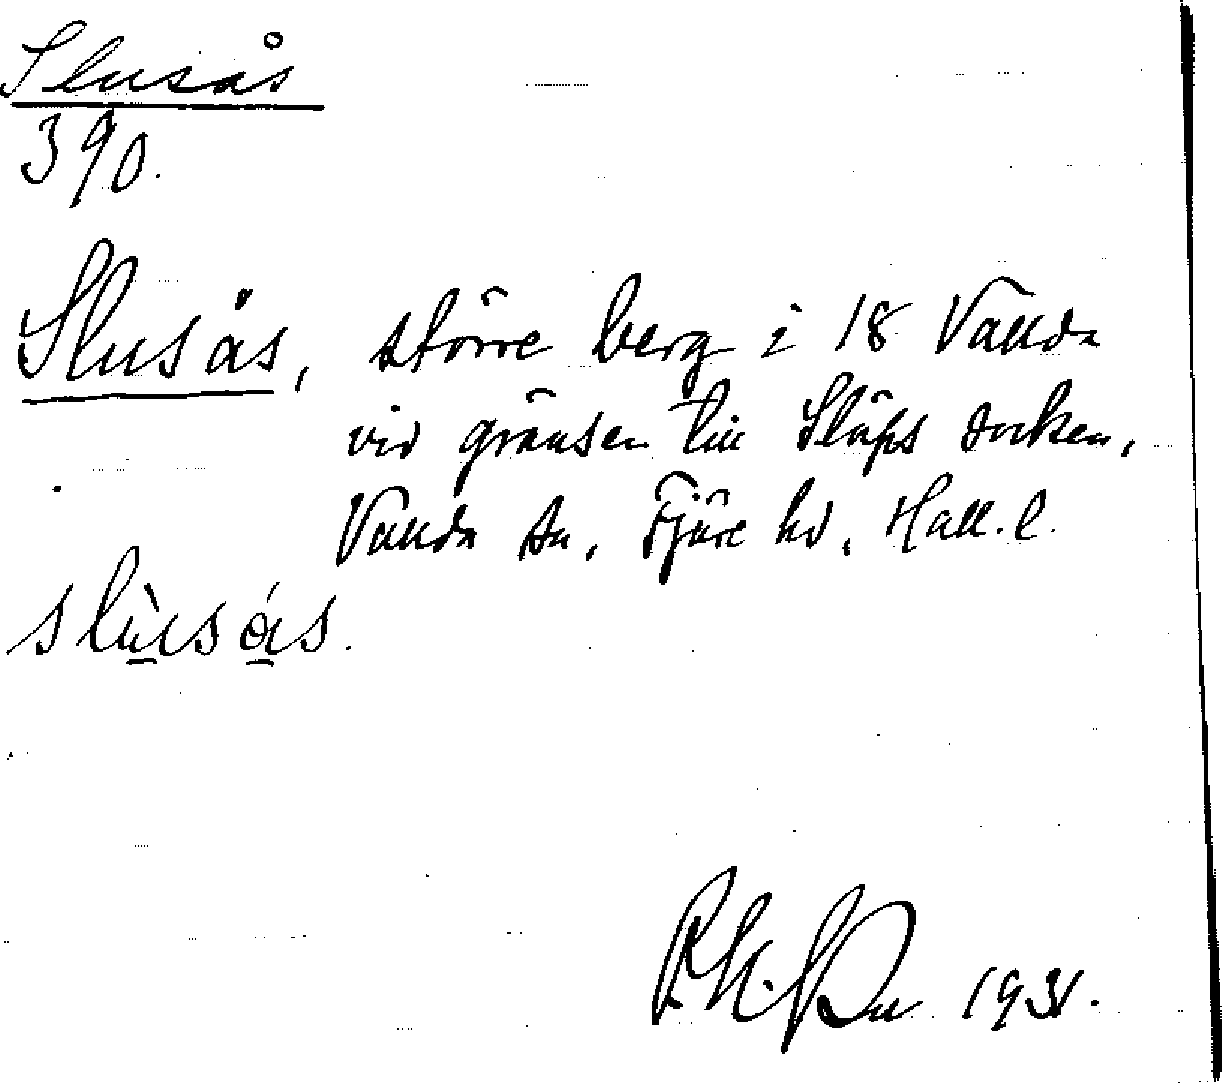 Slusås
390.
Slusås, större berg i 18 Vallda
vid gränsen till Släps socken,
Vallda sn, Fjäre hd, Hall. l.
slùsås.
1931.